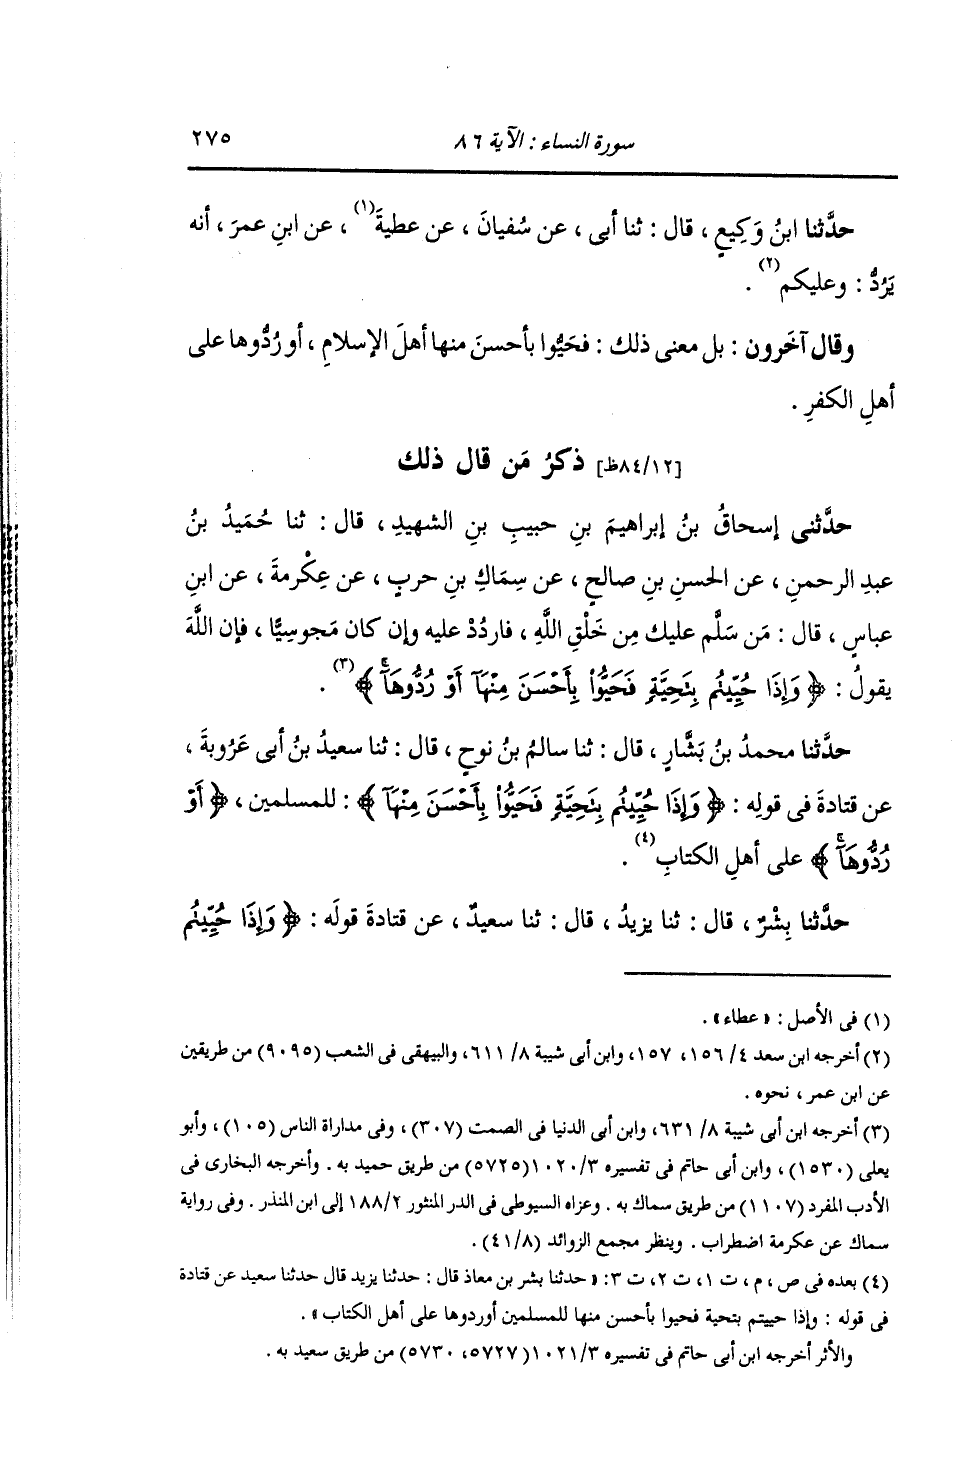 سورة النساء : الآية ٨٦ ٢٧٥
حدَّثنا ابنُ وَكِيعٍ ، قال : ثنا أبى ، عن سُفيانَ ، عن عطيةَ(١) ، عن ابنِ عمرَ ، أنه
يَرُدُّ : وعليكم(٢) .
وقال آخَرون : بل معنى ذلك : فحَيُّوا بأحسنَ منها أهلَ الإسلامِ ، أو رُدُّوها على
أهلِ الكفرِ .
[٨٤/١٢ظ] ذكرُ مَن قال ذلك
حدَّثنى إسحاقُ بنُ إبراهيمَ بنِ حبيبِ بنِ الشهيدِ ، قال : ثنا حُمَيدُ بنُ
عبدِ الرحمنِ ، عن الحسنِ بنِ صالحٍ ، عن سِمَاكِ بنِ حربٍ ، عن عِكْرمةَ ، عن ابنِ
عباسٍ ، قال : مَن سَلَّم عليك مِن خَلْقِ اللَّهِ ، فاردُدْ عليه وإن كان مَجوسِيًّا ، فإن اللَّهَ
يقولُ : ﴿ وَإِذَا حُيِّيتُم بِتَحِيَّةٍ فَحَيُّوا۟ بِأَحْسَنَ مِنْهَآ أَوْ رُدُّوهَآ ﴾(٣) .
حدَّثنا محمدُ بنُ بَشَّارٍ ، قال : ثنا سالمُ بنُ نوحٍ ، قال : ثنا سعيدُ بنُ أبى عَرُوبةَ ،
عن قتادةَ فى قولِه : ﴿ وَإِذَا حُيِّيتُم بِتَحِيَّةٍ فَحَيُّوا۟ بِأَحْسَنَ مِنْهَآ ﴾ : للمسلمين ، ﴿ أَوْ
رُدُّوهَآ ﴾ على أهلِ الكتابِ(٤) .
حدَّثنا بِشْرٌ ، قال : ثنا يزيدُ ، قال : ثنا سعيدٌ ، عن قتادةَ قولَه : ﴿ وَإِذَا حُيِّيتُم
(١) فى الأصل : « عطاء » .
(٢) أخرجه ابن سعد ٤/ ١٥٦، ١٥٧، وابن أبى شيبة ٨/ ٦١١، والبيهقى فى الشعب (٩٠٩٥) من طريقين
عن ابن عمر ، نحوه .
(٣) أخرجه ابن أبى شيبة ٨/ ٦٣١، وابن أبى الدنيا فى الصمت (٣٠٧) ، وفى مداراة الناس (١٠٥) ، وأبو
يعلى (١٥٣٠) ، وابن أبى حاتم فى تفسيره ١٠٢٠/٣ (٥٧٢٥) من طريق حميد به . وأخرجه البخارى فى
الأدب المفرد (١١٠٧) من طريق سماك به . وعزاه السيوطى فى الدر المنثور ١٨٨/٢ إلى ابن المنذر . وفى رواية
سماك عن عكرمة اضطراب . وينظر مجمع الزوائد (٤١/٨) .
(٤) بعده فى ص ، م ، ت ١، ت ٢، ت ٣: « حدثنا بشر بن معاذ قال : حدثنا يزيد قال حدثنا سعيد عن قتادة
فى قوله : وإذا حييتم بتحية فحيوا بأحسن منها للمسلمين أوردوها على أهل الكتاب » .
والأثر أخرجه ابن أبى حاتم فى تفسيره ١٠٢١/٣ (٥٧٢٧، ٥٧٣٠) من طريق سعيد به .